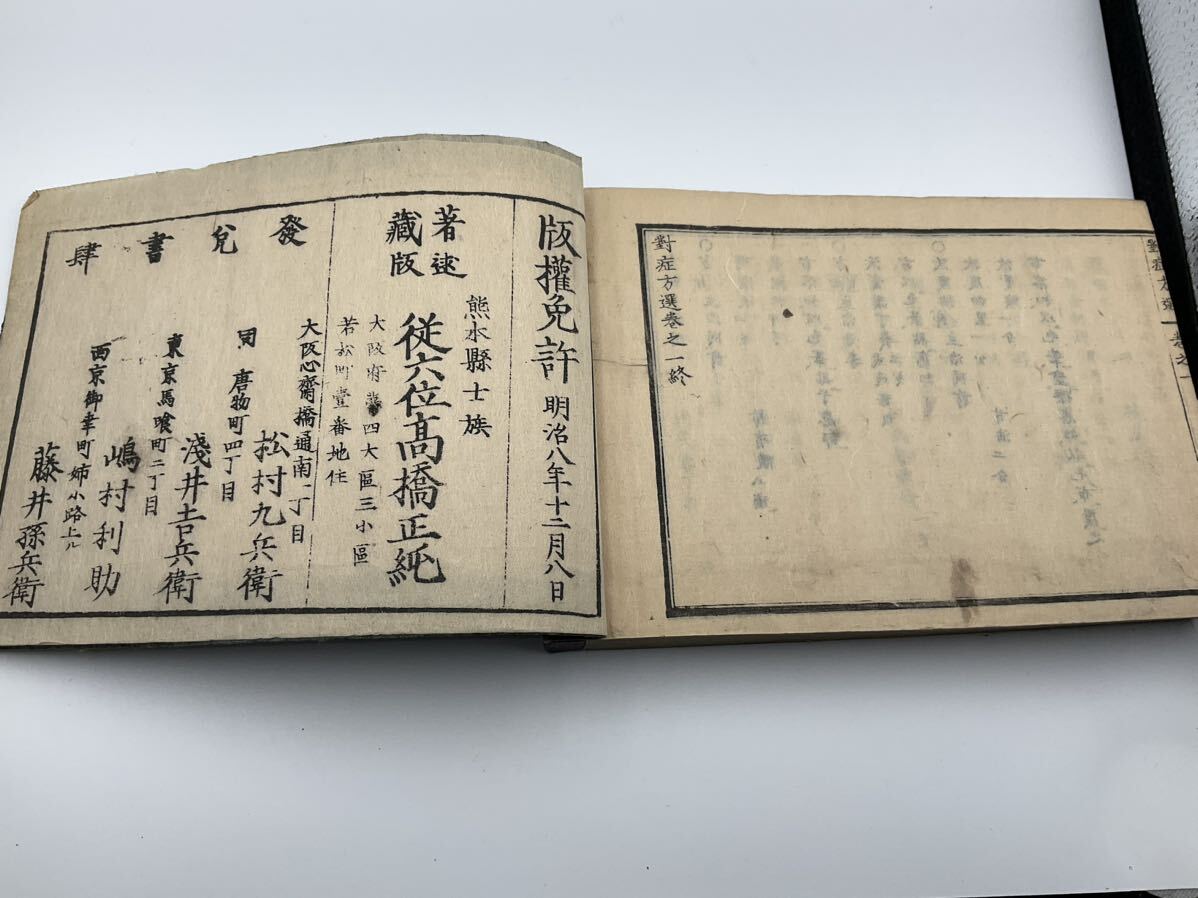 對症方選卷之一
對症方選卷之一終
版權免許 明治八年十二月八日
著述
藏版
熊本縣士族
從六位髙橋正純
大阪府第四大區三小區
若松町壹番地住
發兌書肆
大阪心齋橋通南一丁目
松村九兵衛
同 唐物町四丁目
淺井吉兵衛
東京馬喰町二丁目
嶋村利助
西京御幸町姉小路上ル
藤井孫兵衛